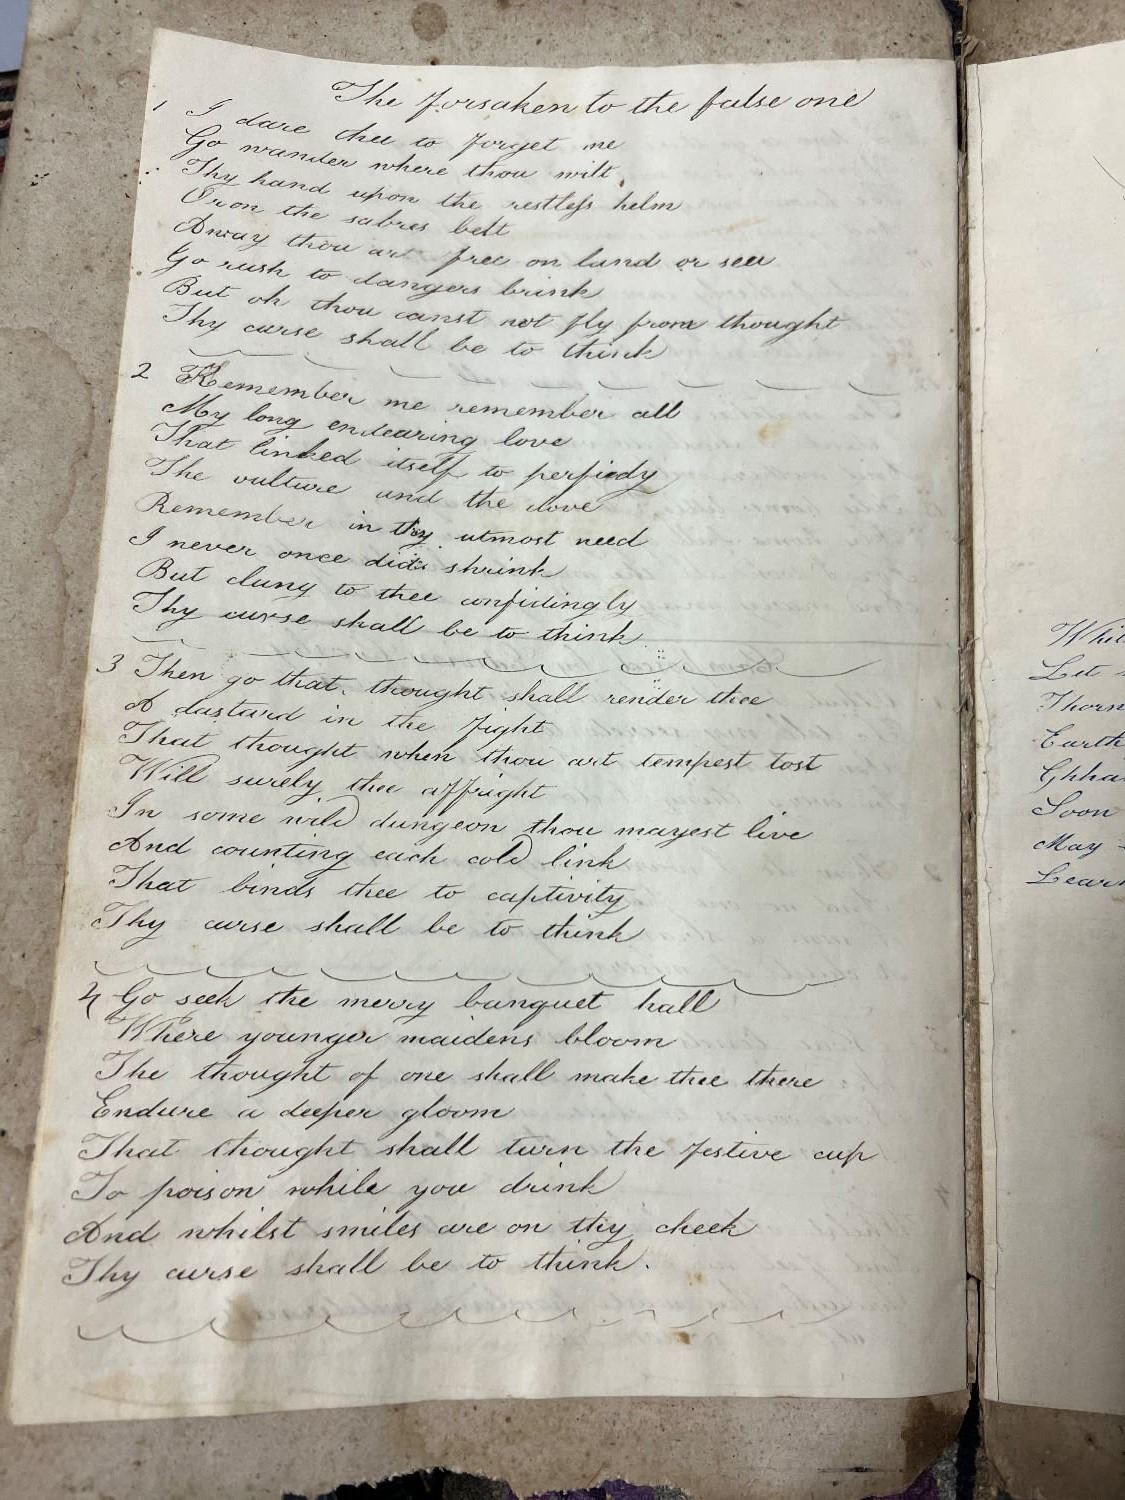 The forsaken to the false one
1 I dare thee to forget me
Go wander where thou wilt
Thy hand upon the restless helm
Or on the sabres belt
Away thou art free on land or sea
Go rush to dangers brink
But oh thou canst not fly from thought
Thy curse shall be to think
2 Remember me remember all
My long endearing love
That linked itself to perfiedy
The vulture and the dove
Remember in thy utmost need
I never once did shrink
But clung to thee confidingly
Thy curse shall be to think
3 Then go that thought shall render thee
A dastard in the fight
That thought when thou art tempest tost
Will surely thee affright
In some wild dungeon thou mayest live
And counting each cold link
That binds thee to captivity
Thy curse shall be to think
4 Go seek the merry banquet hall
Where younger maidens bloom
The thought of one shall make thee there
Endure a deeper gloom
That thought shall turn the festive cup
To poison while you drink
And whilst smiles are on thy cheek
Thy curse shall be to think.
Let
Thorn
Earth
Soon
May
Learn